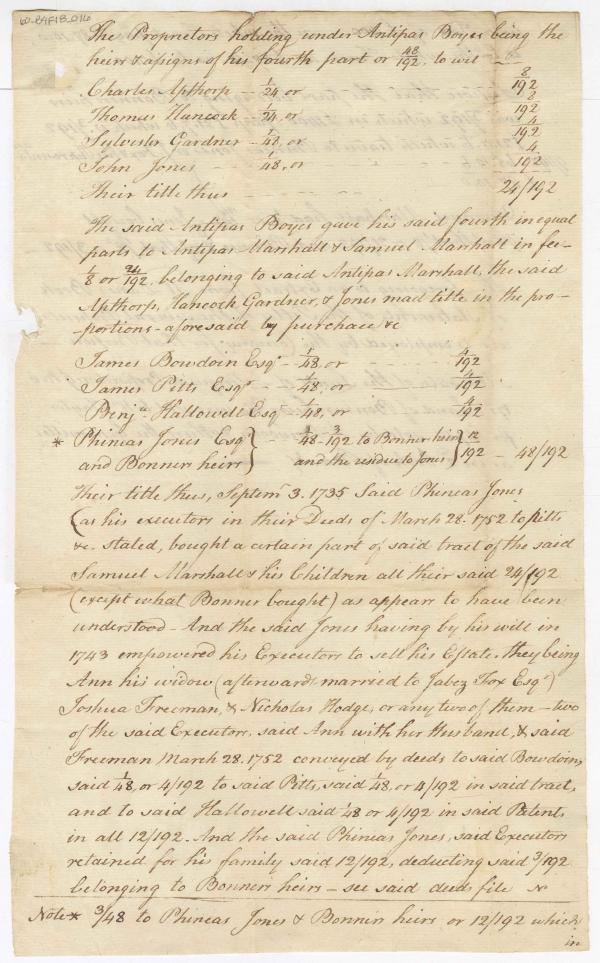 60-B4F1B-016
The Proprietors holding under Antipas Boyes being the
heirs & assigns of his fourth part or 48/192, to wit
Charles Apthorp - 1/24 or 8/192
Thomas Hancock - 1/24, or 8/192
Sylvester Gardner - 1/48, or 4/192
John Jones - 1/48, or 4/192
Their title thus 24/192
The said Antipas Boyes gave his said fourth in equal
parts to Antipas Marshall & Samuel Marshall in fee-
1/8 or 24/192, belonging to said Antipas Marshall, the said
Apthorp, Hancock Gardner, & Jones mad title in the pro-
-portions - aforesaid by purchase &c
James Bowdoin Esqr - 1/48, or 4/192
James Pitts Esqr - 1/48, or 4/192
Benja Hallowell Esqr - 1/48, or 4/192
* Phineas Jones Esq } - 3/192 to Bonner heirs } 12/192 - 48/192
and Bonner heirs } and the residue to Jones }
Their title thus, Septemr 3. 1735 Said Phineas Jones
(as his executors in their Deeds of March 28. 1752 to pitts
&c. stated, bought a certain part of said tract of the said
Samuel Marshall & his Children all their said 24/192
(except what Bonner bought) as appears to have been
understood - And the said Jones having by his will in
1743 empowered his Executors to sell his Estate, they being
Ann his widow (afterwards married to Jabez Fox Esqr)
Joshua Freeman, & Nicholas Hodge, or any two of them - two
of the said Executors, said Ann with her Husband, & said
Freeman March 28. 1752 conveyed by deeds to said Bowdoin,
said 1/48, or 4/192 to said Pitts, said 1/48, or 4/192 in said tract,
and to said Hallowell said 1/48 or 4/192 in said Patents
in all 12/192. And the said Phineas Jones, said Executors
retained for his family said 12/192, deducting said 3/192
belonging to Bonners heirs - see said deeds file No
Note * 3/48 to Phineas Jones & Bonners heirs or 12/192 which
in